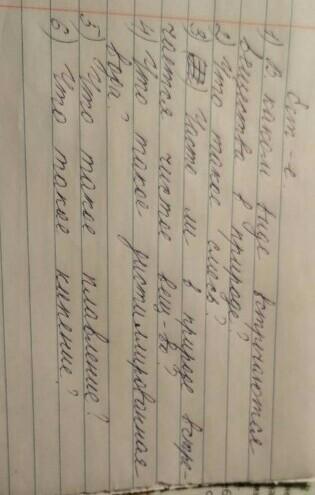 Ест-е.
1) В каком виде встречаются
вещества в природе?
2) Что такое смесь?
3) Часто ли в природе встре-
чается чистое вещ-во?
4) Что такое дистиллированная
вода?
5) Что такое плавление?
6) Что такое кипение?